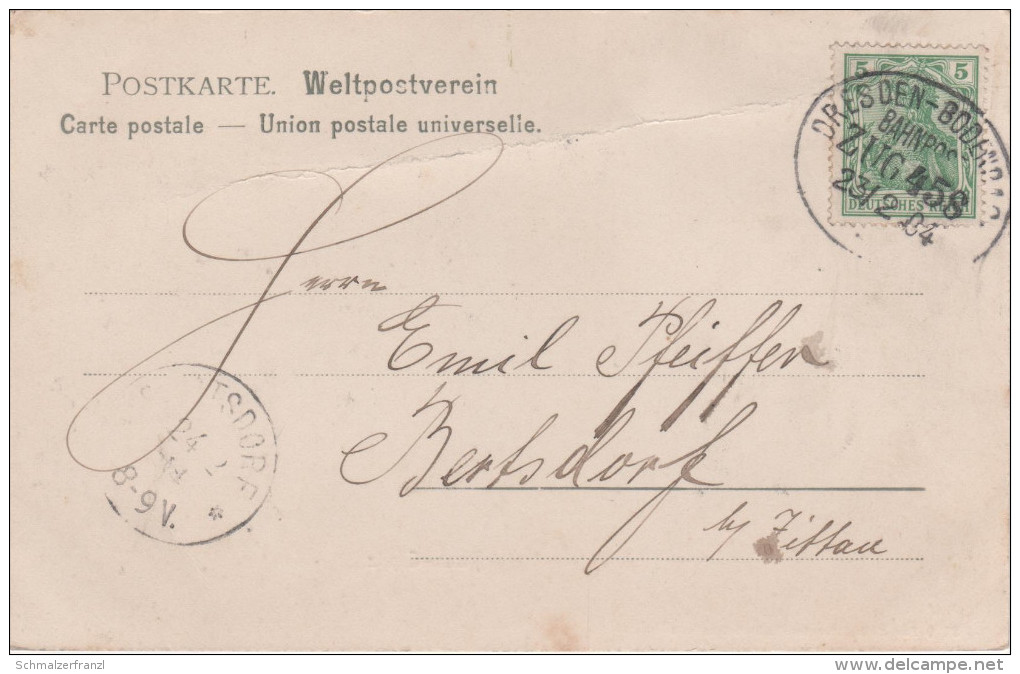 POSTKARTE. Weltpostverein
Carte postale — Union postale universelle.
5 5
DEUTSCHES REICH
DRESDEN-BODENBAC
BAHNPOS
ZUG 458
23/2 04
Herrn
Emil Pfeiffer
Bertsdorf
b/ Zittau
TSDORF
24 2
8-9 V.
*
Schmalzerfranzl
www.delcampe.net